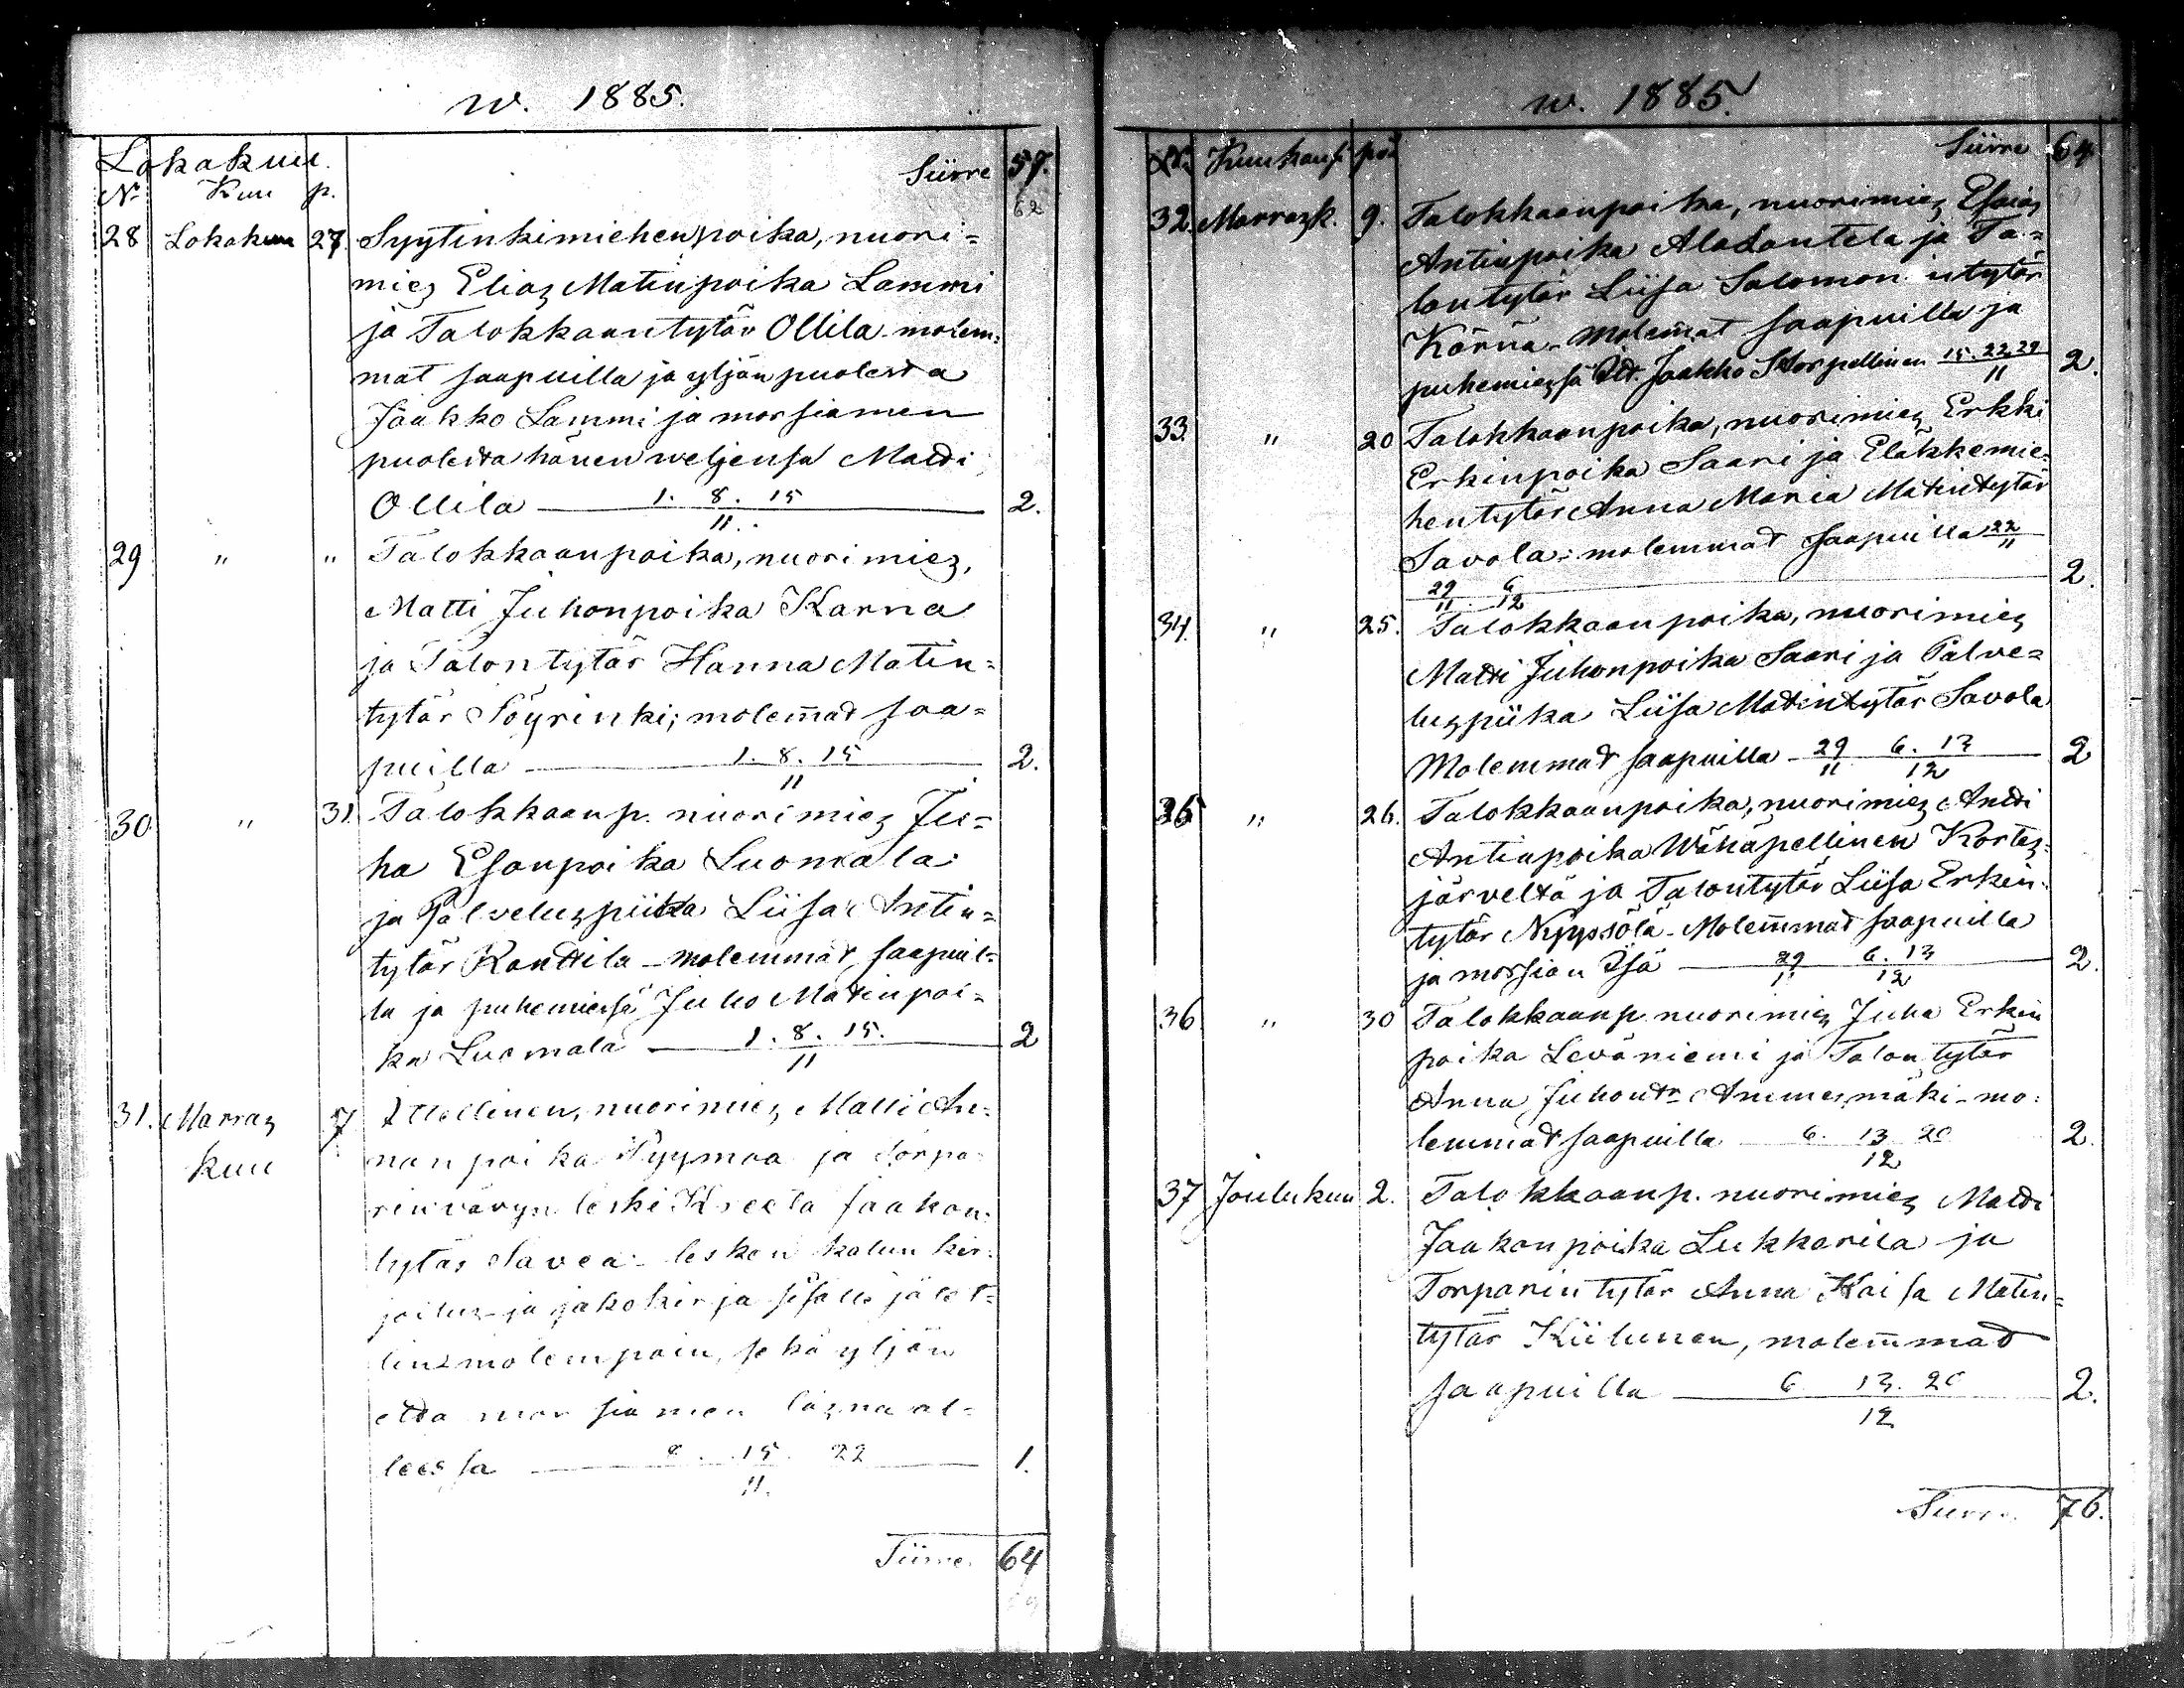 w. 1885.
Lokakuu.
No Kuu p. Siirre 57.
62
28 Lokakuu 27. Syytinkimiehenpoika, nuori=
mies Elias Matinpoika Lammi
ja Talokkaantytär Ollila molem=
mat saapuilla ja yljän puolesta
Jaakko Lammi ja morsiamen
puolesta hänen weljensä Matti
Ollila 1. 8. 15 2.
11.
29 " " Talokkaanpoika, nuorimies,
Matti Juhonpoika Karna
ja Talontytär Hanna Matin=
tytär Söyrinki; molem̄at saa=
puilla 1. 8. 15 2.
11
30 " 31. Talokkaanp. nuorimies Ju=
ha Esanpoika Luomala
ja Palveluspiika Liisa Antin=
tytär Kanttila molemmat saapuil=
la ja puhemiessä Juho Matinpoi=
ka Luomala 1. 8. 15. 2
11
31. Marras 7 Itsellinen, nuorimies Matti An=
kuu nanpoika Pyymaa ja Torpa=
rinvävyn leski Kreeta Jaakon=
tytär Savea. lesken kalun kir=
joitus- ja jakokirja sisälle jätet=
molempain, sekä yljän
että morsiamen läsnä ol=
leessa 8. 15. 22 1.
11.
Siirre. 64
w. 1885.
No. Kuukausi pä Siirre 64
32. Marrask. 9. Talokkaanpoika, nuorimies Esaias
Antinpoika Ala Lantela ja Ta=
lontytär Liisa Salomonintytär
Körnä. molem̄at saapuilla ja
puhemiessä Itl. Jaakko Storpellinen 15. 22. 29 2.
11
33. " 20 Talokkaanpoika, nuorimies Erkki
Erkinpoika Saari ja Eläkkemie=
hentytär Anna Maria Matintytär
Savola; molemmat saapuilla 22
11
29 6 2.
11 12
34. " 25. Talokkaanpoika, nuorimies
Matti Juhonpoika Saari ja Palve=
luspiika Liisa Matintytär Savola
Molemmat saapuilla 29 6. 13 2
11 12
35 " 26. Talokkaanpoika, nuorimies Antti
Antinpoika Wähäpellinen Kortes=
järveltä ja Talontytär Liisa Erkin=
tytär Nyyssölä. Molem̄mat saapuilla
ja morsian Isä 29 6. 13 2.
11 12
36 " 30 Talokkaanp. nuorimies Juha Erkin
poika Leväniemi ja Talontytär
Anna Juhontr Ammesmäki. mo=
lemmat saapuilla 6. 13 20 2.
12
37 Joulukuu 2. Talokkaanp. nuorimies Matti
Jaakonpoika Lukkarila ja
Torparintytär Anna Kaisa Matin=
tytär Kiilunen, molem̄mat
saapuilla 6 13. 20 2.
12
Siirre. 76.